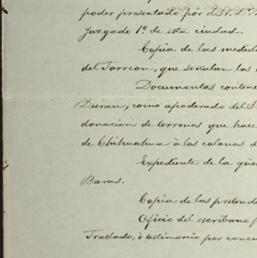 poder presentado por el Sr. D.
Juzgado 1º de esta ciudad.
Copia de las medid
del Torreon, que señalan los
Documentos conten
Duran, como apoderado del S
donacion de terrenos que hace
de Chihuahua á los colonos d
Expediente de la
Baras.
Copia de las
Oficio del escribano
Traslado, ó testimonio por